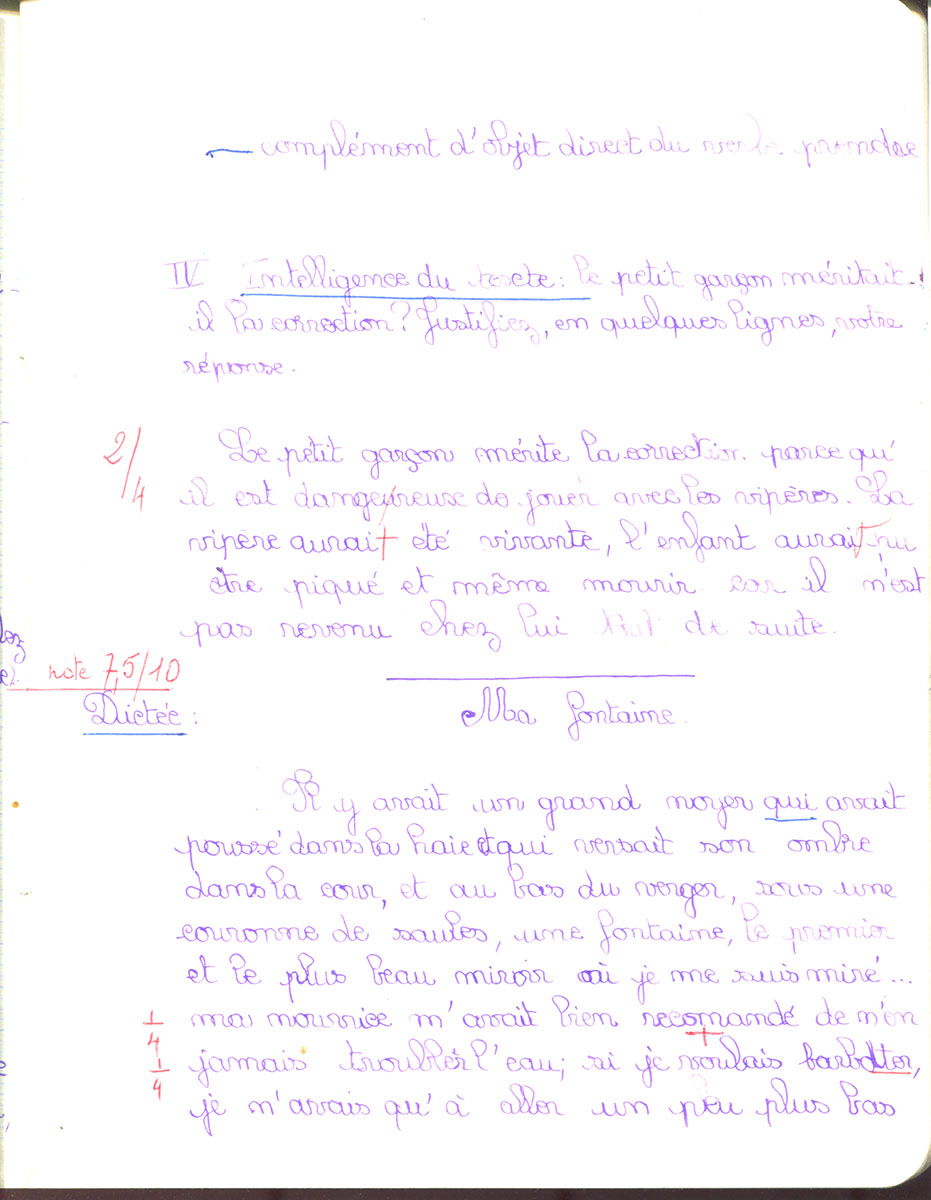 complément d'objet direct du verbe prendre
IV Intelligence du texte : le petit garçon méritait-
il la correction ? Justifiez, en quelques lignes, votre
réponse.
2/4
Le petit garçon mérite la correction parce qu'
il est dangeureuse de jouer avec les vipères. La
vipère aurait été vivante, l'enfant aurait pu
être piqué et même mourir car il n'est
pas revenu chez lui tout de suite.
note 7,5/10
Dictée : Ma fontaine.
Il y avait un grand noyer qui avait
poussé dans la haie et qui versait son ombre
dans la cour, et au bas du verger, sous une
couronne de saules, une fontaine, le premier
et le plus beau miroir où je me suis miré...
1/4 ma nourrice m'avait bien recomandé de n'en
1/4 jamais troubler l'eau; si je voulais barbotter,
je n'avais qu'à aller un peu plus bas